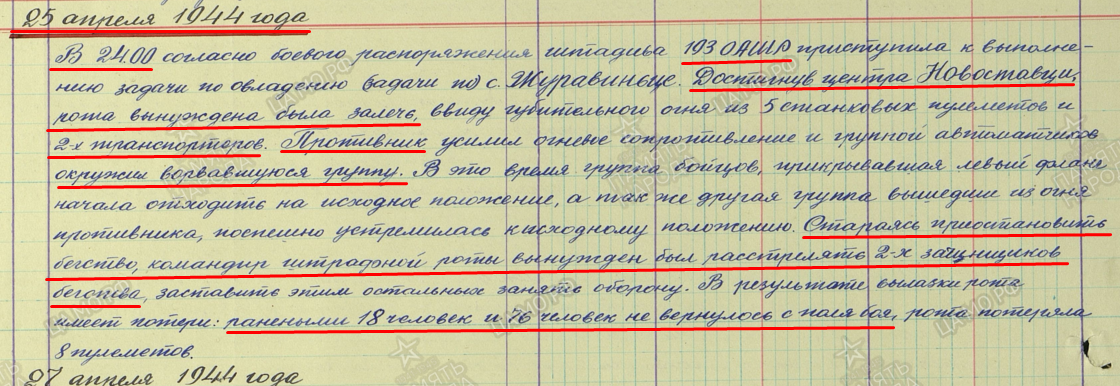 25 апреля 1944 года
В 24.00 согласно боевого распоряжения штадива 193 ОАШР приступила к выполне-
нию задачи по овладению задачи по с. Журавиньце. Достигнув центра Новоставци,
рота вынуждена была залечь, ввиду губительного огня из 5 станковых пулеметов и
2-х транспортеров. Противник усилил огневое сопротивление и группой автоматчиков
окружил ворвавшуюся группу. В это время группа бойцов, прикрывавшая левый фланг
начала отходить на исходное положение, а так же другая группа вышедши из огня
противника, поспешно устремилась к исходному положению. Стараясь приостановить
бегство, командир штрафной роты вынужден был расстрелять 2-х зачинщиков
бегства, заставить этим остальных занять оборону. В результате вылазки рота
имеет потери: ранеными 18 человек и 76 человек не вернулось с поля боя, рота потеряла
8 пулеметов.
27 апреля 1944 года